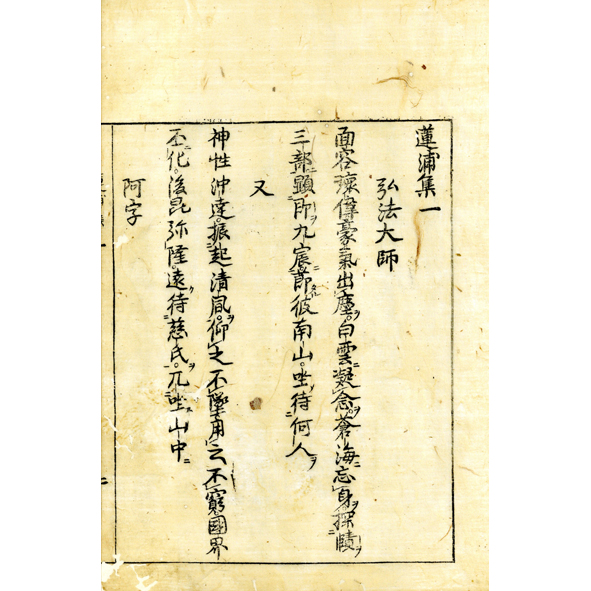 蓮浦集一
弘法大師
面容瓌偉豪氣出塵。白雲凝念。蒼海忘身。探賾
三部顕印九宸。即彼南山。坐待何人
又
神性沖遠。振起清風。仰之不墜。用之不窮。國界
丕化。後昆弥隆。遠待慈氏。兀坐山中
阿字
二